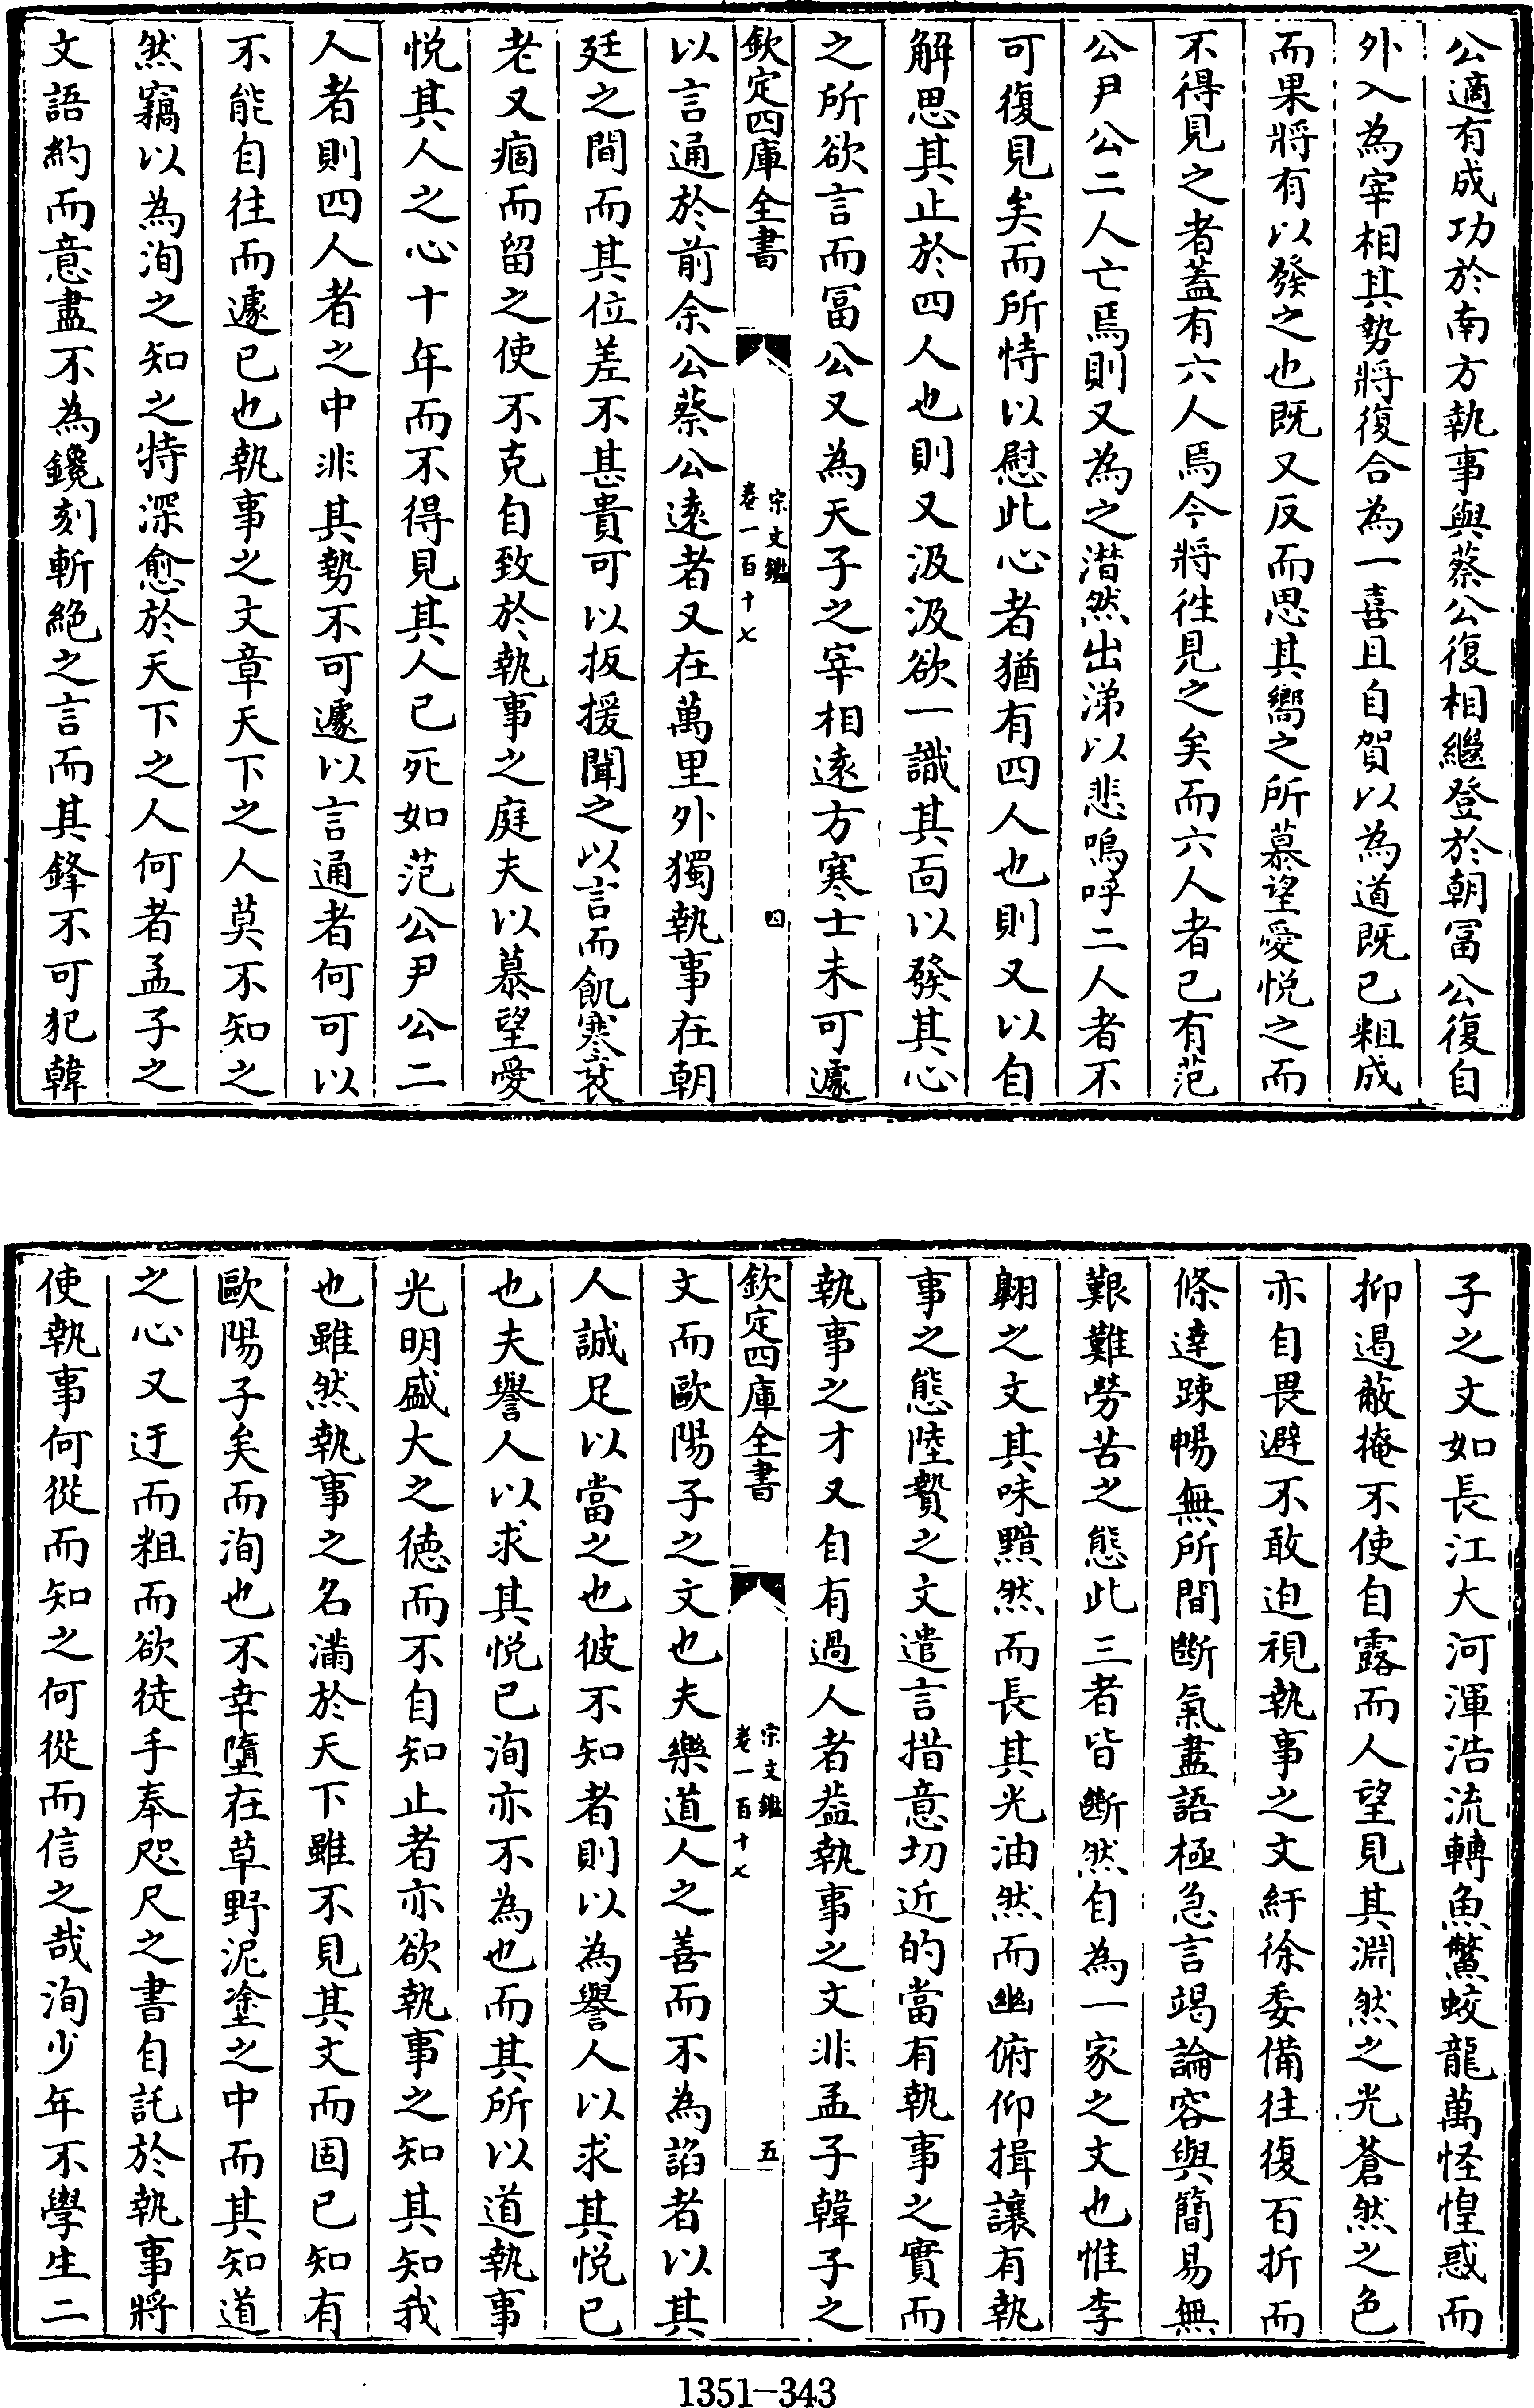 公適有成功於南方執事與蔡公復相繼登於朝冨公復自
外入為宰相其勢將復合為一喜且自賀以為道既已粗成
而果將有以發之也既又反而思其嚮之所慕望愛悅之而
不得見之者蓋有六人焉今將徃見之矣而六人者已有范
公尹公二人亡焉則又為之潸然出涕以悲嗚呼二人者不
可復見矣而所恃以慰此心者猶有四人也則又以自
解思其止於四人也則又汲汲欲一識其靣以發其心
之所欲言而冨公又為天子之宰相遠方寒士未可遽
欽定四庫全書
宋文鑑
卷一百十七
四
以言通於前余公蔡公遠者又在萬里外獨執事在朝
廷之間而其位差不甚貴可以扳援聞之以言而飢寒衰
老又痼而留之使不克自致於執事之庭夫以慕望愛
悅其人之心十年而不得見其人已死如范公尹公二
人者則四人者之中非其勢不可遽以言通者何可以
不能自往而遽已也執事之文章天下之人莫不知之
然竊以為洵之知之特深愈於天下之人何者孟子之
文語約而意盡不為鑱刻斬絕之言而其鋒不可犯韓
子之文如長江大河渾浩流轉魚鱉蛟龍萬怪惶惑而
抑遏蔽掩不使自露而人望見其淵然之光蒼然之色
亦自畏避不敢迫視執事之文紆徐委備往復百折而
條達踈暢無所間斷氣盡語極急言竭論容與簡易無
艱難勞苦之態此三者皆斷然自為一家之文也惟李
翺之文其味黯然而長其光油然而幽俯仰揖讓有執
事之態陸贄之文遣言措意切近的當有執事之實而
執事之才又自有過人者葢執事之文非孟子韓子之
欽定四庫全書
宋文鑑
卷一百十七
五
文而歐陽子之文也夫樂道人之善而不為諂者以其
人誠足以當之也彼不知者則以為譽人以求其悅已
也夫譽人以求其悅已洵亦不為也而其所以道執事
光明盛大之德而不自知止者亦欲執事之知其知我
也雖然執事之名滿於天下雖不見其文而固已知有
歐陽子矣而洵也不幸墮在草野泥塗之中而其知道
之心又迂而粗而欲徒手奉咫尺之書自託於執事將
使執事何從而知之何從而信之哉洵少年不學生二
1351-343